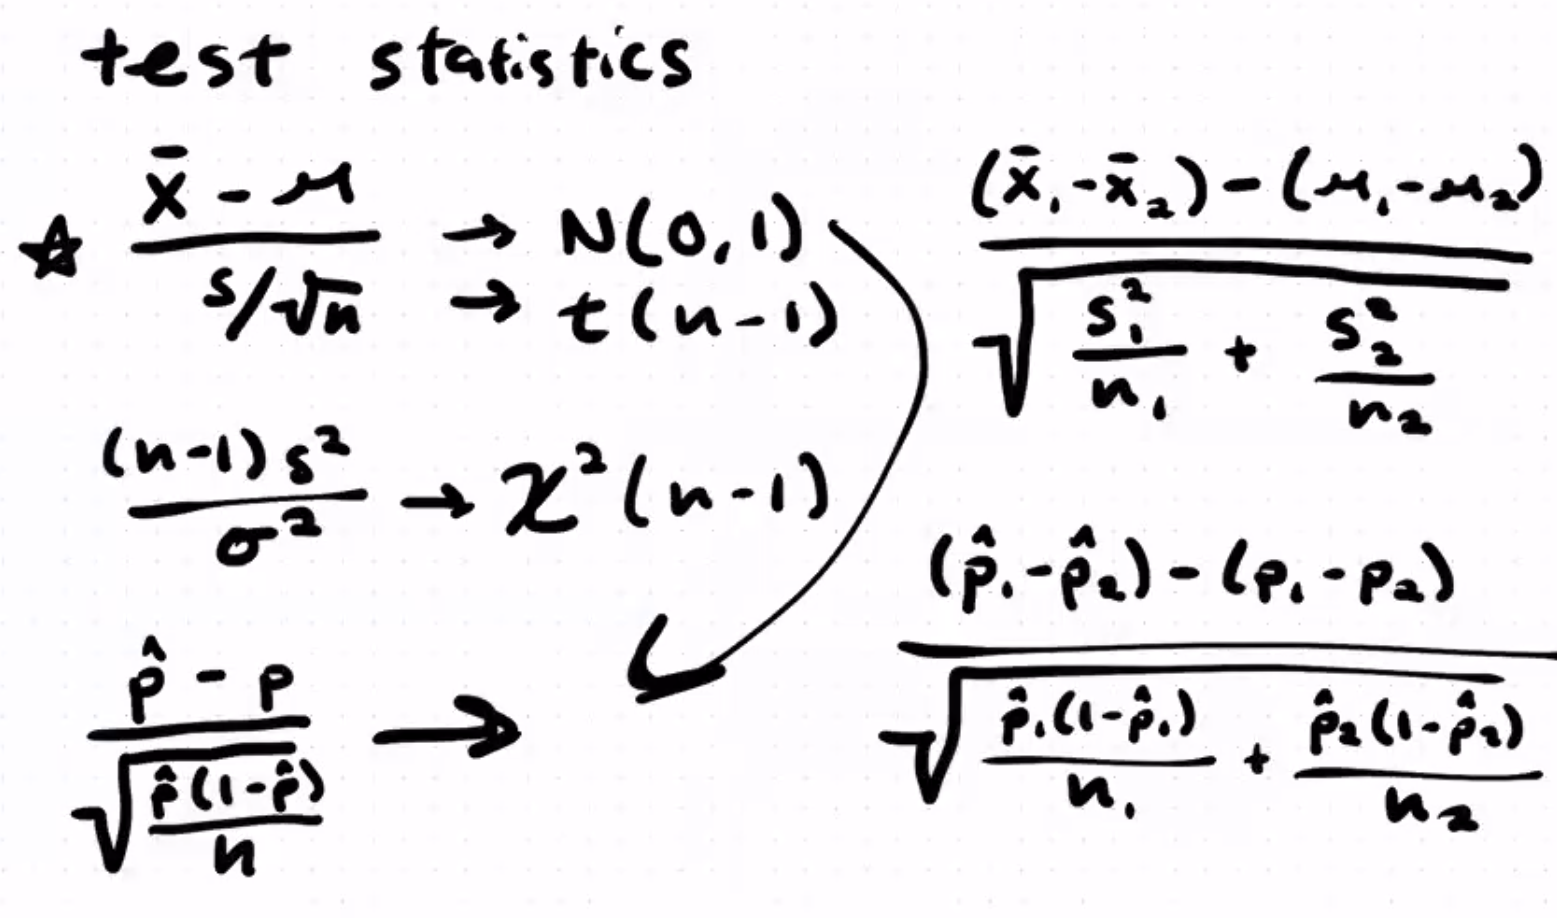 test statistics
☆ (x̄ - μ) / (s/√n) → N(0,1)
→ t(n-1)
(n-1)s² / σ² → χ²(n-1)
(p̂ - p) / √(p̂(1-p̂)/n) →
((x̄₁ - x̄₂) - (μ₁ - μ₂)) / √(s₁²/n₁ + s₂²/n₂)
((p̂₁ - p̂₂) - (p₁ - p₂)) / √(p̂₁(1-p̂₁)/n₁ + p̂₂(1-p̂₂)/n₂)